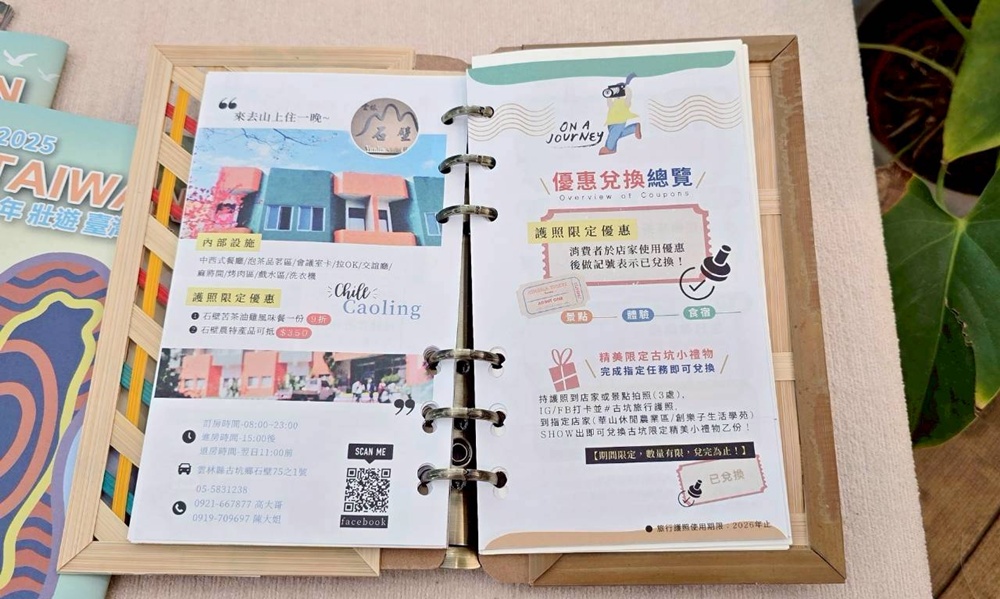 2025
TAIWAN
年 壯遊 臺灣
來去山上住一晚~
石壁
內部設施
中西式餐廳/泡茶品茗區/會議室卡/拉OK/交誼廳/
麻將間/烤肉區/戲水區/洗衣機
護照限定優惠
Chill
Caoling
❶ 石壁苦茶油雞風味餐一份 9折
❷ 石壁農特產品可抵 $350
訂房時間-08:00-23:00
進房時間-15:00後
退房時間-翌日11:00前
雲林縣古坑鄉石壁75之1號
05-5831238
0921-667877 高大哥
0919-709697 陳大姐
SCAN ME
facebook
ON A
JOURNEY
優惠兌換總覽
Overview of Coupons
護照限定優惠
消費者於店家使用優惠
後做記號表示已兌換！
景點
體驗
食宿
精美限定古坑小禮物
完成指定任務即可兌換
持護照到店家或景點拍照(3處),
IG/FB打卡並#古坑旅行護照,
到指定店家(華山休閒農業區/創樂子生活學苑)
SHOW出即可兌換古坑限定精美小禮物乙份！
【期間限定，數量有限，兌完為止！】
已兌換
● 旅行護照使用期限：2026年止